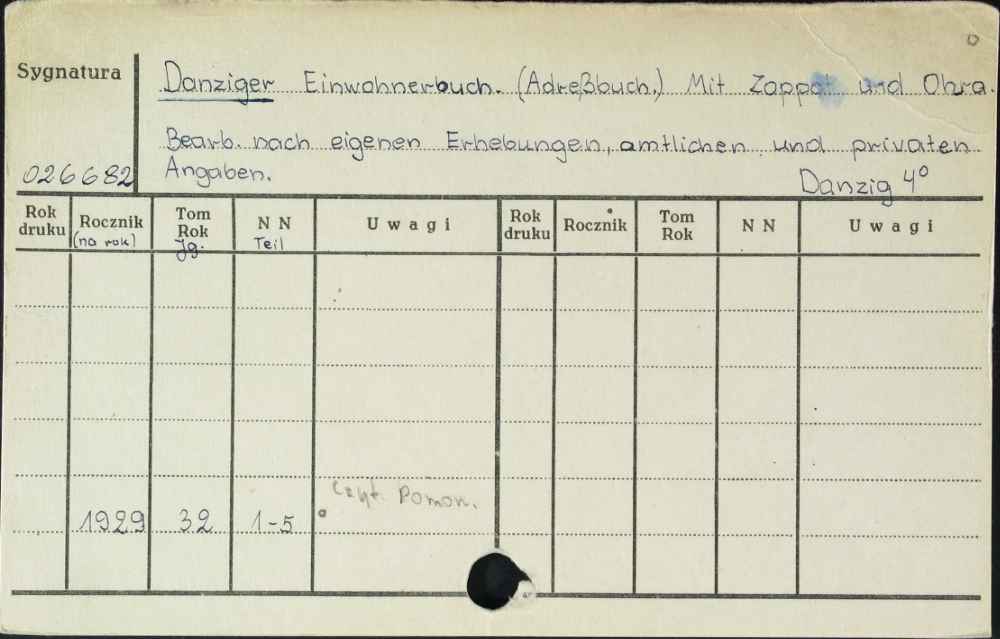 Sygnatura
Danziger Einwohnerbuch. (Adreßbuch.) Mit Zoppot und Ohra.
Bearb. nach eigenen Erhebungen, amtlichen und privaten
026682 Angaben. Danzig 4°
Rok druku Rocznik (na rok) Tom Rok Jg. N N Teil Uwagi Rok druku Rocznik Tom Rok N N Uwagi
Czyt. Pomon.
1929 32 1-5